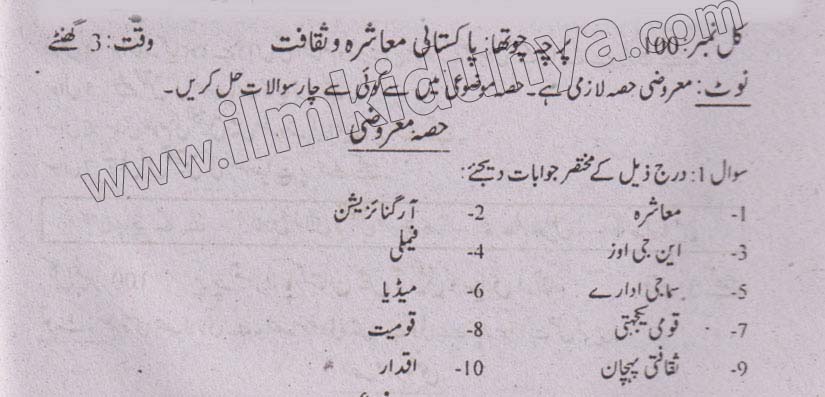 کل نمبر: 100 پرچہ چوتھا: پاکستانی معاشرہ و ثقافت وقت: 3 گھنٹے
نوٹ: معروضی حصہ لازمی ہے۔ حصہ موضوعی میں سے کوئی سے چار سوالات حل کریں۔
حصہ معروضی
سوال 1: درج ذیل کے مختصر جوابات دیجئے:
1- معاشرہ 2- آرگنائزیشن
3- این جی اوز 4- فیملی
5- سماجی ادارے 6- میڈیا
7- قومی یکجہتی 8- قومیت
9- ثقافتی پہچان 10- اقدار
www.ilmkidunya.com